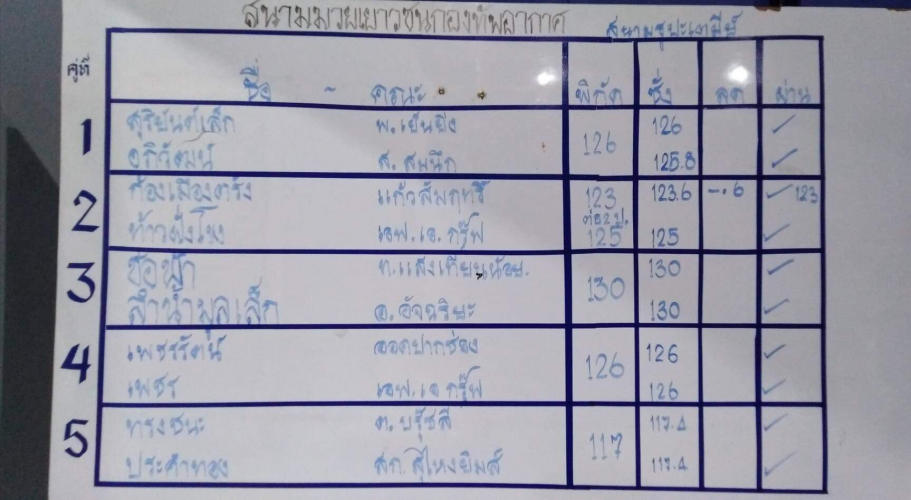 สนามมวยเยาวชนกองทัพอากาศ
สนามชูปะเตมีย์
คู่ที่ ชื่อ - คณะ พิกัด ชั่ง ลด ผ่าน
1 สุริยันต์เล็ก พ.เย็นยิ่ง 126 126 ✓
อภิวัฒน์ ส. สมนึก 125.8 ✓
2 ก้องเมืองตรัง แก้วสัมฤทธิ์ 123 123.6 -.6 ✓ 123
ต่อ 2 ป.
ท้าวฝั่งโขง เอฟ.เอ. กรุ๊ฟ 125 125 ✓
3 ช่อฟ้า ท.แสงเทียนน้อย. 130 130 ✓
ลำน้ำมูลเล็ก อ. อัจฉริยะ 130 ✓
4 เพชรรัตน์ ออดปากช่อง 126 126 ✓
เพชร เอฟ.เอ กรุ๊ฟ 126 ✓
5 ทรงชนะ ต. บรู๊ซลี 117 117.4 ✓
ประคำทอง สก. สุไหงยิมส์ 117.4 ✓